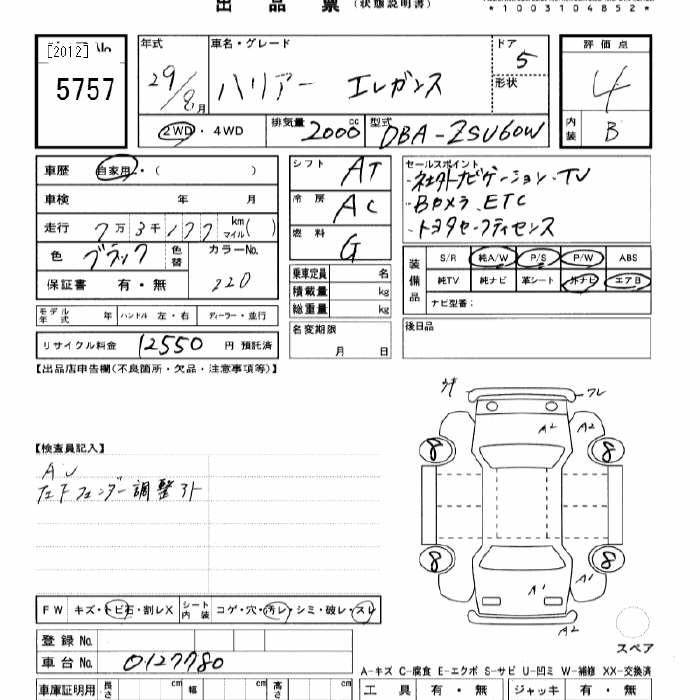 出品票（状態説明書）
*1003104852*
[2012] No
5757
年式 29/8月
車名・グレード ハリアー エレガンス
ドア 5
形状
評価点 4
内装 B
2WD・4WD
排気量 2000cc
型式 DBA-ZSU60W
車歴 自家用・（ ）
車検 年 月
走行 7万3千177 km マイル( )
色 ブラック
色替
カラーNo. 220
保証書 有・無
シフト AT
冷房 AC
燃料 G
乗車定員 名
積載量 kg
総重量 kg
セールスポイント
・社外ナビゲーション、TV
・Bカメラ、ETC
・トヨタセーフティセンス
装備品
S/R 純A/W P/S P/W ABS
純TV 純ナビ 革シート 外ナビ エアB
ナビ型番：
モデル年式 年 ハンドル 左・右 ディーラー・並行
名変期限 月 日
後日品
リサイクル料金 12550 円 預託済
【出品店申告欄(不良箇所・欠品・注意事項等)】
フレ
A2 A2
8 8
【検査員記入】
AU
左Fフェンダー調整外
8 8
A1 A1
A2
FW キズ・トビ石・割レX シート内装 コゲ・穴・汚レ・シミ・破レ・スレ
スペア
登録No.
車台No. 0127780
A-キズ C-腐食 E-エクボ S-サビ U-凹ミ W-補修 XX-交換済
車庫証明用 長さ cm 幅 cm 高さ cm
工具 有・無 ジャッキ 有・無